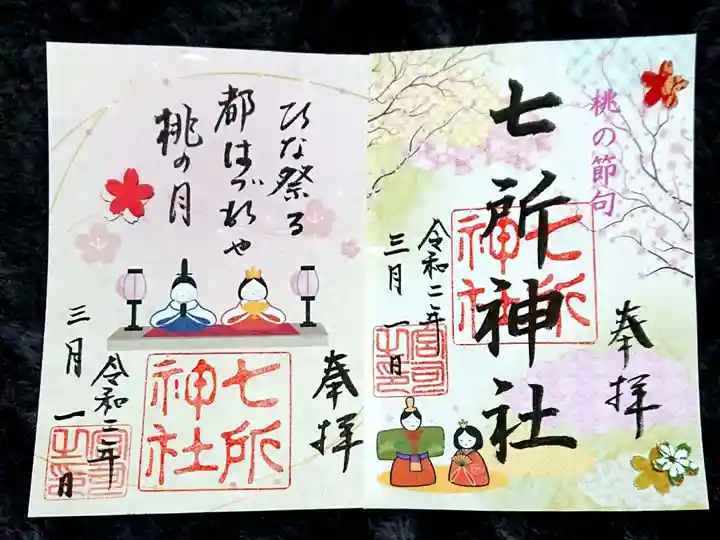 桃の節句
奉拝
七所神社
七所
神社
令和二年
三月一日
宮司
之印
ひな祭る
都はづれや
桃の月
奉拝
七所
神社
令和二年
三月一日
宮司
之印